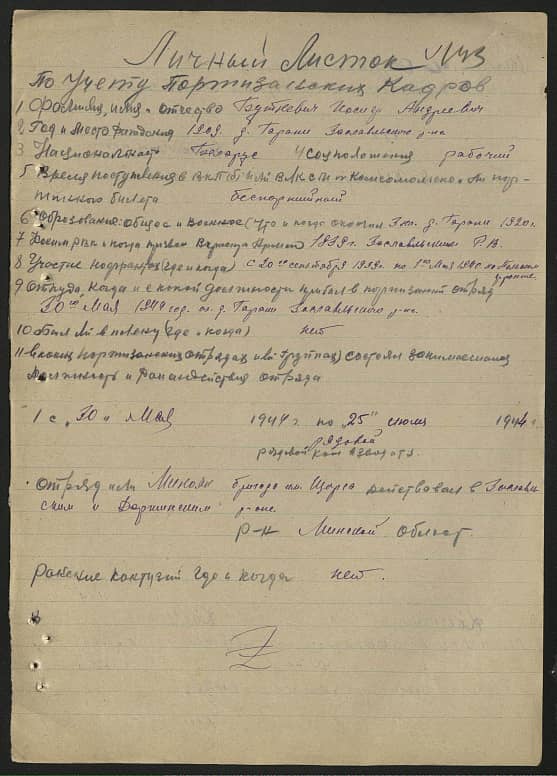 Личный Листок №43
По Учету Портизанских Кадров
1 Фамилия, имя и отчество Иосиф Андреевич
2 Год и место рождения 1909. д. Гарани Заславльского р-на
3 Национальность 4 Соцположения рабочий
5 Время поступления в ВКП(б) или ВЛКСМ № комсомольского или пар-
тийного билета беспартийный
6 Образование: общее и военное (что и когда окончил 3 кл. д. Гарани 1920г.
7 Каким РВК и когда призван в Красную Армию 1939г. Заславльским Р.В.
8 Участие на фронтах (где и когда) с 20го сентября 1939г. по 1ое Мая 1940 на
9 Откуда, когда и с какой должности прибыл в портизанский отряд
30го Мая 1944 год. из д. Гарани Заславльского р-на
10 был ли в плену (где и когда) нет
11 в каких портизанских отрядах или группах) состоял занимаемая
должность и район действия отряда
1 с „30“ Мая 1944 г по „25“ июня 1944 г.
рядовой
рядовой взвод отд.
отряд или бригада им. Щорса действовал в Заславль
ском и р-оне.
р-н Минской област.
Ранение контузий где и когда нет.